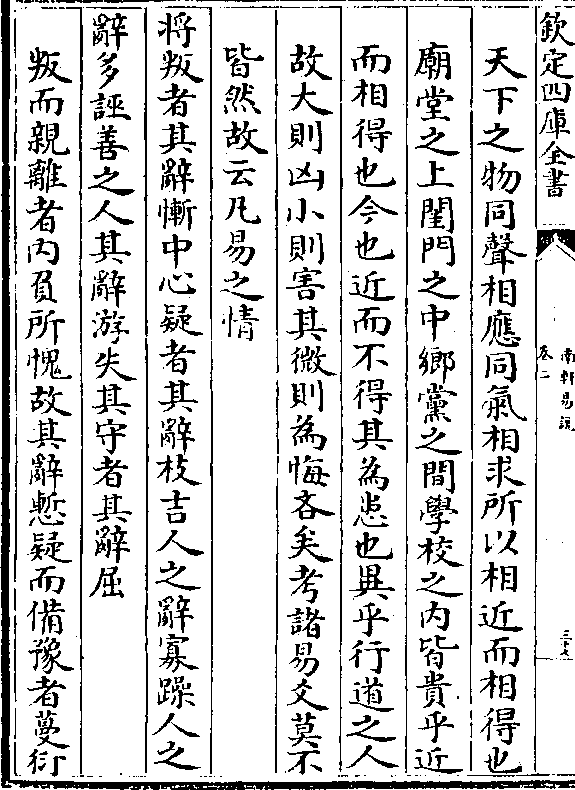 欽定四庫全書
南軒易說
卷二
天下之物同聲相應同氣相求所以相近而相得也
廟堂之上閨門之中鄉黨之間學校之內皆貴乎近
而相得也今也近而不得其為患也異乎行道之人
故大則凶小則害其微則為悔吝矣考諸易爻莫不
皆然故云凡易之情
將叛者其辭慚中心疑者其辭枝吉人之辭寡躁人之
辭多誣善之人其辭游失其守者其辭屈
叛而親離者內負所愧故其辭慙疑而備豫者蔓衍